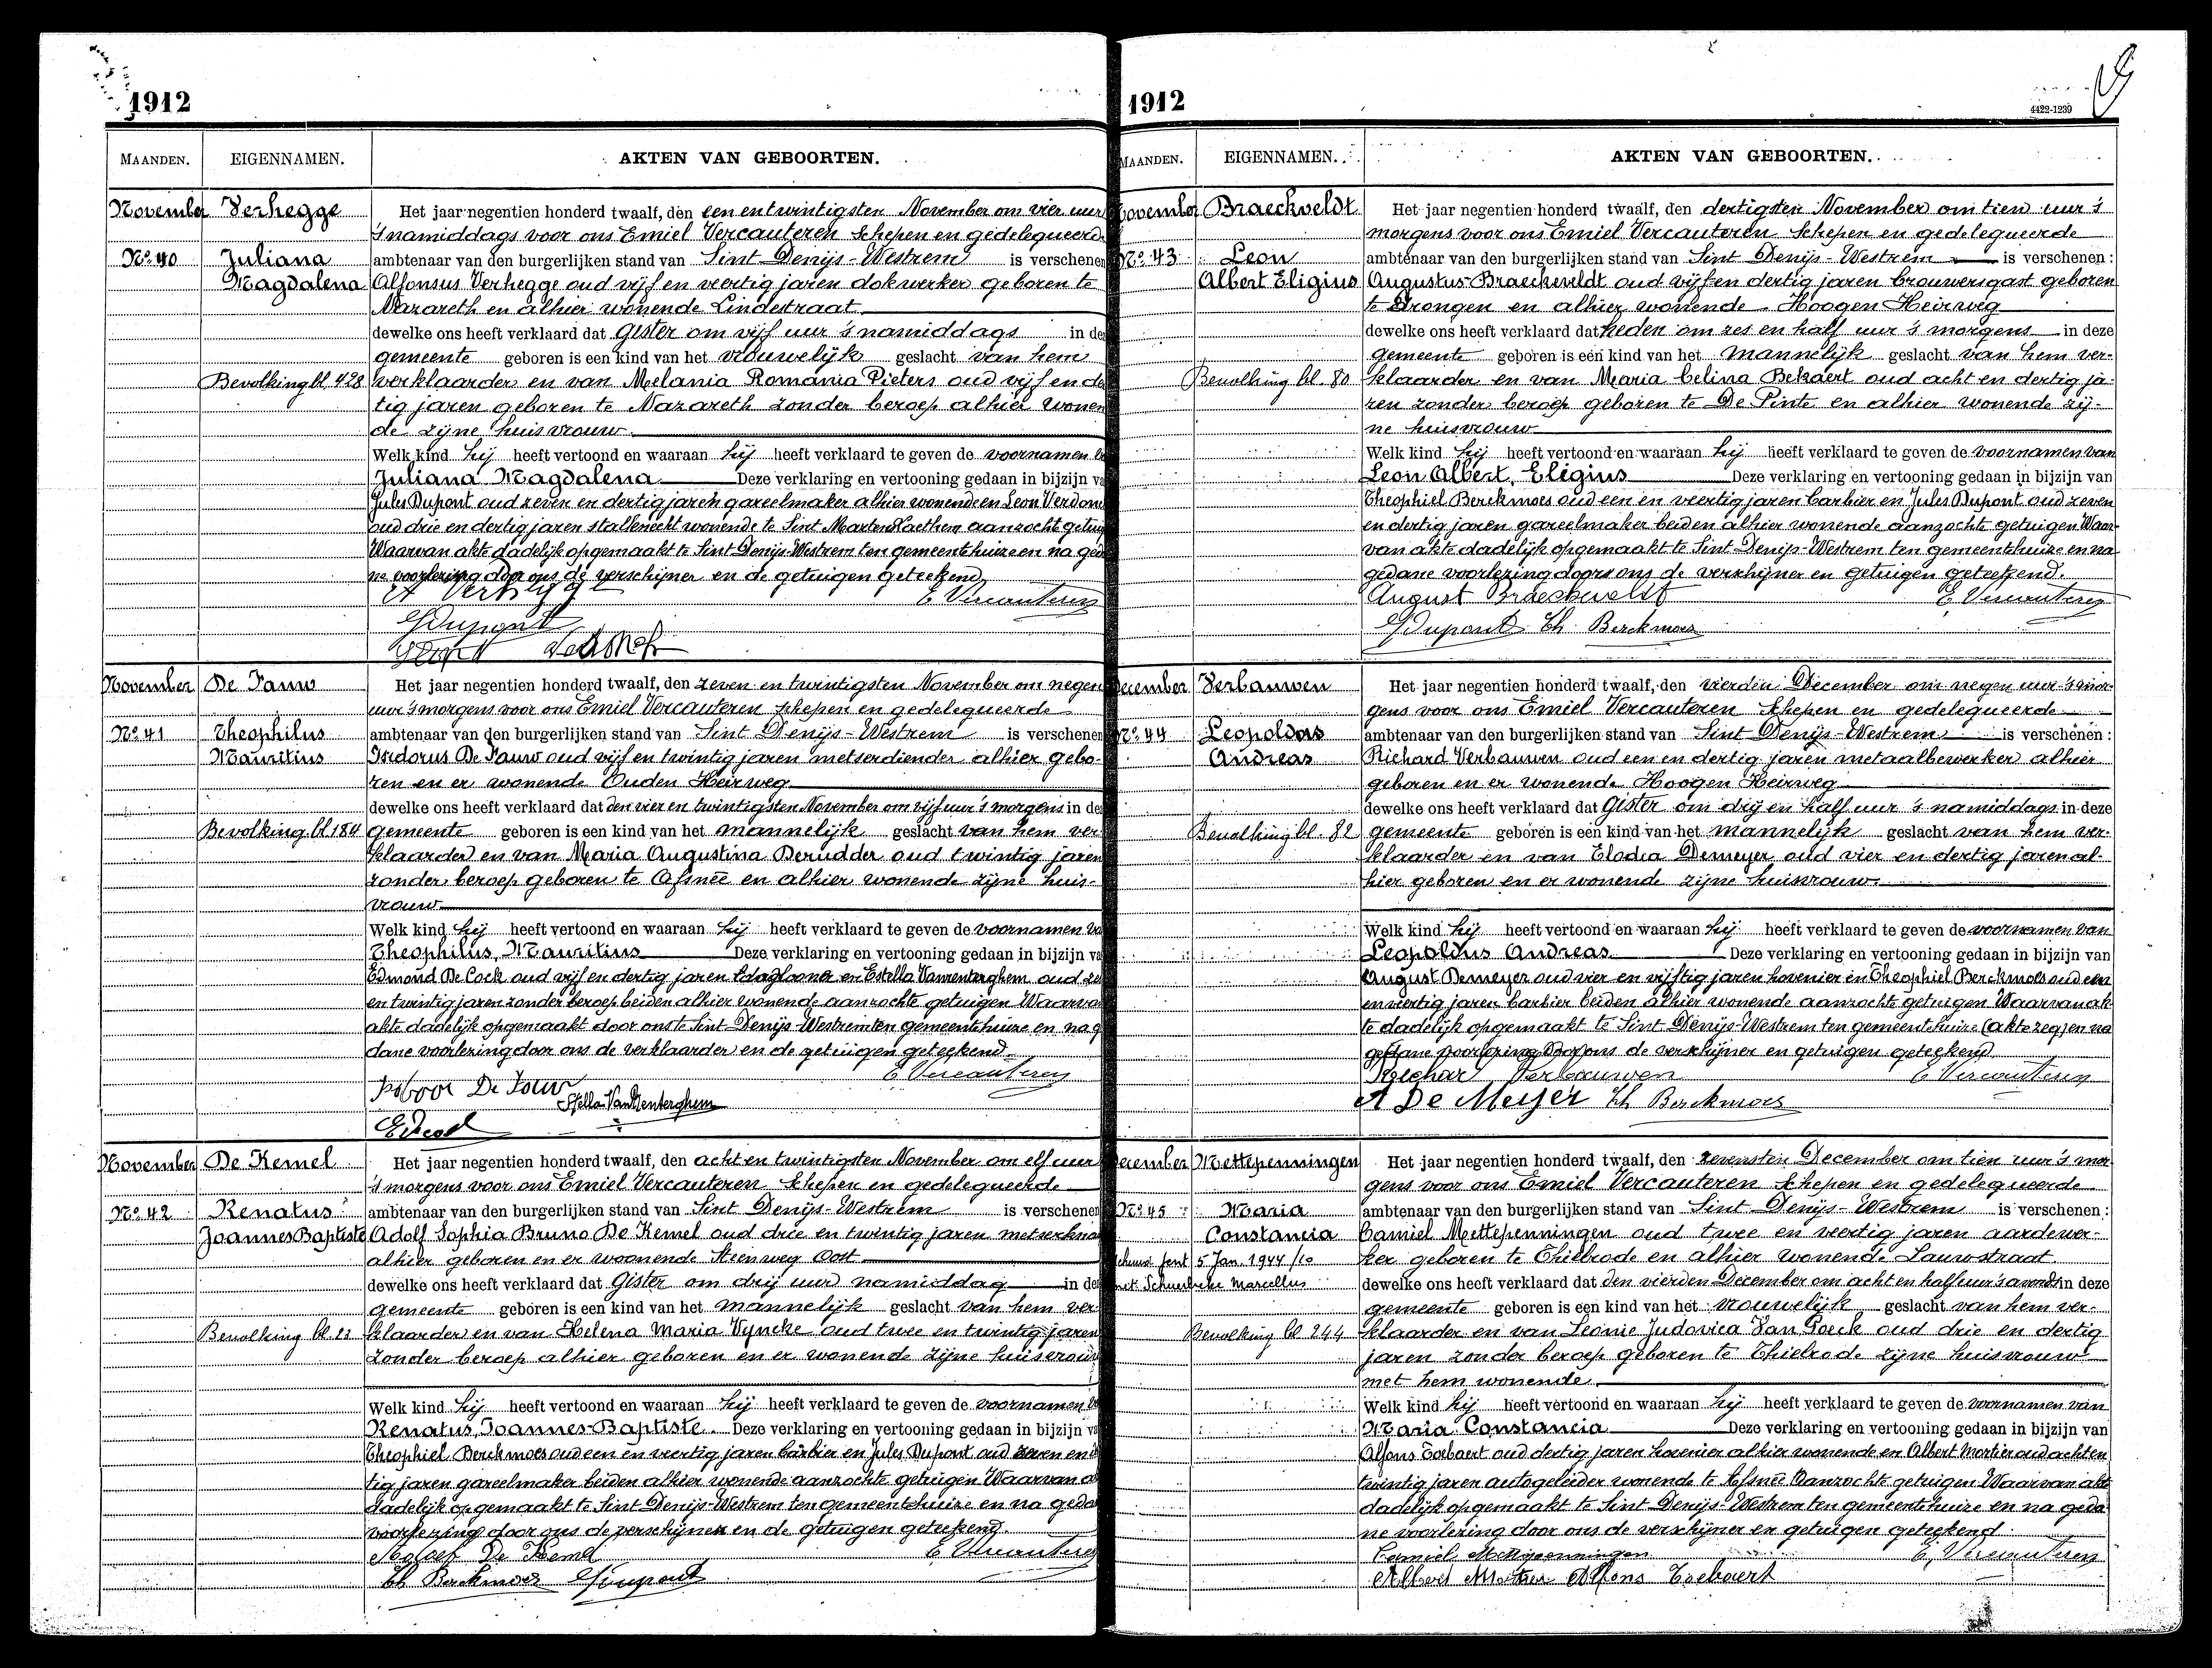 1912
MAANDEN. EIGENNAMEN. AKTEN VAN GEBOORTEN.
November Verhegge Het jaar negentien honderd twaalf, den een en twintigsten November om vier uur
'snamiddags voor ons Emiel Vercauteren schepen en gedelegueerd
No. 40 Juliana ambtenaar van den burgerlijken stand van Sint Denijs-Westrem is verschenen
Magdalena Alfonsus Verhegge oud vijf en veertig jaren dokwerker geboren te
Nazareth en alhier wonende Lindestraat
dewelke ons heeft verklaard dat Gister om vijf uur 's namiddags in de
gemeente geboren is een kind van het vrouwelijk geslacht van hem
Bevolking bl. 428 verklaarder en van Melania Romania Pieters oud vijf en de
tig jaren geboren te Nazareth zonder beroep alhier wonen
de zijne huisvrouw.
Welk kind hij heeft vertoond en waaraan hij heeft verklaard te geven de voornamen
Juliana Magdalena Deze verklaring en vertooning gedaan in bijzijn va
Jules Dupont oud zeven en dertig jaren gareelmaker alhier wonende en Leon Verdon
oud drie en dertig jaren stalknecht wonende te Sint Martens Laethem aanzochte getui
Waarvan akte dadelijk opgemaakt te Sint Denijs-Westrem ten gemeentehuize en na geda
ne voorlezing door ons de verschijner en de getuigen geteekend
A Verhegge E Vercauteren
J Dupont
Leon
November De Pauw Het jaar negentien honderd twaalf, den zeven en twintigsten November om negen
uur 's morgens voor ons Emiel Vercauteren schepen en gedelegueerde
No. 41 Theophilus ambtenaar van den burgerlijken stand van Sint Denijs-Westrem is verschenen
Mauritius Isidorus De Pauw oud vijf en twintig jaren metserdiender alhier gebo-
ren en er wonende Ouden Heirweg
dewelke ons heeft verklaard dat den vier en twintigsten November om vijf uur 's morgens in de
Bevolking bl 184 gemeente geboren is een kind van het mannelijk geslacht van hem ver
klaarder en van Maria Augustina Derudder oud twintig jaren
zonder beroep geboren te Afsnee en alhier wonende zijne huis-
vrouw
Welk kind hij heeft vertoond en waaraan hij heeft verklaard te geven de voornamen va
Theophilus, Mauritius Deze verklaring en vertooning gedaan in bijzijn va
Edmond De Cock oud vijf en dertig jaren daglooner en Estella Vanrenterghem oud ze
en twintig jaren zonder beroep beiden alhier wonende aanzochte getuigen Waarva
akte dadelijk opgemaakt door ons te Sint Denijs-Westrem ten gemeentehuize en na g
dane voorlezing door ons de verklaarder en de getuigen geteekend
E Vercauteren
De Pauw
Stella VanRenterghem
November De Kemel Het jaar negentien honderd twaalf, den acht en twintigsten November om elf uur
's morgens voor ons Emiel Vercauteren schepen en gedelegueerde
No. 42 Renatus ambtenaar van den burgerlijken stand van Sint Denijs-Westrem is verschenen
Joannes Baptiste Adolf Sophia Bruno De Kemel oud drie en twintig jaren metserkna
alhier geboren en er woonende Steenweg Oost
dewelke ons heeft verklaard dat Gister om drij uur namiddag in de
gemeente geboren is een kind van het mannelijk geslacht van hem ver
Bevolking bl. 23 klaarder en van Helena Maria Vyncke oud twee en twintig jaren
zonder beroep alhier geboren en er wonende zijne huisvrouw
Welk kind hij heeft vertoond en waaraan hij heeft verklaard te geven de voornamen
Renatus, Joannes-Baptiste. Deze verklaring en vertooning gedaan in bijzijn va
Theophiel Berckmoes oud een en veertig jaren barbier en Jules Dupont oud zeven en
tig jaren gareelmaker beiden alhier wonende aanzochte getuigen Waarvan a
dadelijk opgemaakt te Sint Denijs-Westrem ten gemeentehuize en na geda
voorlezing door ons de verschijner en de getuigen geteekend.
Adolf De Kemel E Vercauteren
Th Berckmoes J Dupont
1912
4422-1239
MAANDEN. EIGENNAMEN. AKTEN VAN GEBOORTEN.
November Braeckveldt Het jaar negentien honderd twaalf, den dertigsten November om tien uur 's
morgens voor ons Emiel Vercauteren Schepen en gedelegueerde
No. 43 Leon ambtenaar van den burgerlijken stand van Sint Denijs-Westrem is verschenen:
Albert Eligius Augustus Braeckeveldt oud vijf en dertig jaren brouwersgast geboren
te Drongen en alhier wonende Hoogen Heirweg
dewelke ons heeft verklaard dat heden om zes en half uur 's morgens in deze
gemeente geboren is een kind van het mannelijk geslacht van hem ver-
Bevolking bl. 80 klaarder en van Maria Celina Bekaert oud acht en dertig ja-
ren zonder beroep geboren te De Pinte en alhier wonende zij-
ne huisvrouw
Welk kind hij heeft vertoond en waaraan hij heeft verklaard te geven de voornamen van
Leon Albert, Eligius Deze verklaring en vertooning gedaan in bijzijn van
Theophiel Berckmoes oud een en veertig jaren barbier en Jules Dupont oud zeven
en dertig jaren gareelmaker beiden alhier wonende aanzochte getuigen Waar-
van akte dadelijk opgemaakt te Sint Denijs-Westrem ten gemeentehuize en na
gedane voorlezing door ons de verschijner en getuigen geteekend.
August Braeckevelt E Vercauteren
J Dupont Th. Berckmoes
December Verbauwen Het jaar negentien honderd twaalf, den vierden December om negen uur 's mor-
gens voor ons Emiel Vercauteren Schepen en gedelegueerde
No. 44 Leopoldus ambtenaar van den burgerlijken stand van Sint Denijs-Westrem is verschenen:
Andreas Richard Verbauwen oud een en dertig jaren metaalbewerker alhier
geboren en er wonende Hoogen Heirweg
dewelke ons heeft verklaard dat Gister om drij en half uur 's namiddags in deze
Bevolking bl. 82 gemeente geboren is een kind van het mannelijk geslacht van hem ver-
klaarder en van Elodia Demeyer oud vier en dertig jaren al-
hier geboren en er wonende zijne huisvrouw
Welk kind hij heeft vertoond en waaraan hij heeft verklaard te geven de voornamen van
Leopoldus Andreas Deze verklaring en vertooning gedaan in bijzijn van
August Demeyer oud vier en vijftig jaren hovenier en Theophiel Berckmoes oud een
en veertig jaren barbier beiden alhier wonende aanzochte getuigen Waarvan ak
te dadelijk opgemaakt te Sint Denijs-Westrem ten gemeentehuize (akte zeg) en na
gedane voorlezing door ons de verschijner en getuigen geteekend
Richar Verbauwen E Vercauteren
A De Meyer Th Berckmoes
December Mettepenningen Het jaar negentien honderd twaalf, den zevensten December om tien uur 's mor
gens voor ons Emiel Vercauteren Schepen en gedelegueerde
No. 45 Maria ambtenaar van den burgerlijken stand van Sint Denijs-Westrem is verschenen:
Constancia Camiel Mettepenningen oud twee en veertig jaren aardewer-
Gent 5 Jan. 1944 /10 ker geboren te Thielrode en alhier wonende Lauwstraat
Marcellus dewelke ons heeft verklaard dat den vierden December om acht en half uur 's avonds in deze
gemeente geboren is een kind van het vrouwelijk geslacht van hem ver-
Bevolking bl 244 klaarder en van Leonie Judovica Van Poeck oud drie en dertig
jaren zonder beroep geboren te Thielrode zijne huisvrouw
met hem wonende
Welk kind hij heeft vertoond en waaraan hij heeft verklaard te geven de voornamen van
Maria Constancia Deze verklaring en vertooning gedaan in bijzijn van
Alfons Toebaert oud dertig jaren hovenier alhier wonende en Albert Mortier oud acht en
twintig jaren autogeleider wonende te Afsnee Aanzochte getuigen Waarvan akte
dadelijk opgemaakt te Sint Denijs-Westrem ten gemeentehuize en na geda
ne voorlezing door ons de verschijner en getuigen geteekend
Camiel Mettepenningen E. Vercauteren
Albert Mortier Alfons Toebaert